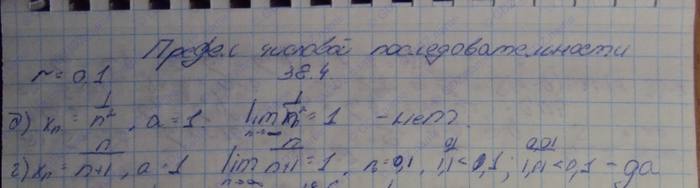 Предел числовой последовательности
r = 0.1 38.4
д) xₙ = 1/n², a = 1. lim n→∞ 1/n² = 1 - нет.
г) xₙ = n/n+1, a = 1 lim n→∞ n/n+1 = 1, n = 0,1, 0,1/1,1 < 0,1; 0,01/1,01 < 0,1 - да